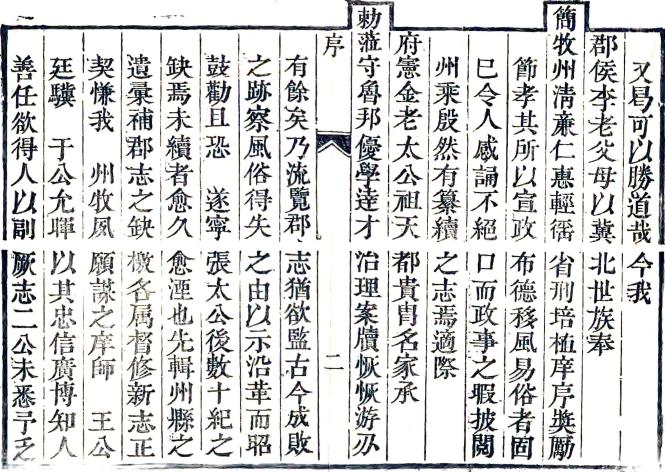 又曷可以勝道哉今我
郡侯李老父母以冀北世族奉
簡牧州清亷仁惠輕徭省刑培植庠序奬勵
節孝其所以宣政布德移風易俗者固
巳令人感誦不絕口而政事之暇披閱
州乘殷然有纂續之志焉適際
府憲金老太公祖天都貴冑名家承
勅蒞守魯邦優學逹才治理案牘恢恢游刃
序 二
有餘矣乃流覽郡志猶欲監古今成敗
之跡察風俗得失之由以示沿革而昭
鼓勸且恐 遂寧張太公後數十紀之
缺焉未續者愈久愈湮也先輯州縣之
遺彚補郡志之缺檄各属督修新志正
契慊我 州牧夙願謀之庠師 王公
廷驥 于公允暉以其忠信廣博知人
善任欲得人以副厥志二公未悉予之